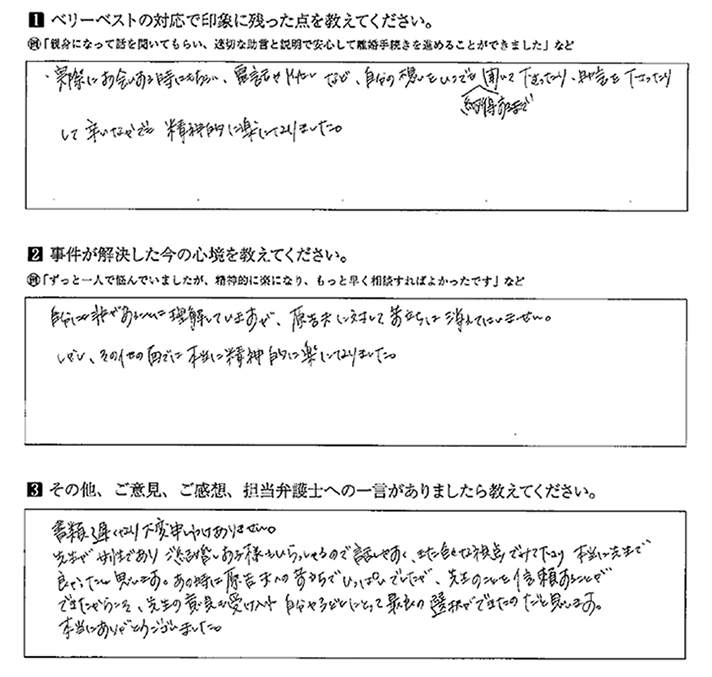 1 ベリーベストの対応で印象に残った点を教えてください。
例「親身になって話を聞いてもらい、適切な助言と説明で安心して離婚手続きを進めることができました」など
・実際にお会いする時にも、電話やメールなど、自分の想いをいつでも聞いて下さったり、助言を下さったり
納得するまで
して辛いなかでも精神的に楽になりました。
2 事件が解決した今の心境を教えてください。
例「ずっと一人で悩んでいましたが、精神的に楽になり、もっと早く相談すればよかったです」など
自分に非があることは理解していますが、原告に対して苛立ちは消えてはいません。
しかし、その他の面では本当に精神的に楽になりました。
3 その他、ご意見、ご感想、担当弁護士への一言がありましたら教えてください。
書類遅くなり大変申しわけありません。
先生が女性であり ご結婚しお子様もいらっしゃるので話しやすく、また色々な視点でみて下さり 本当に先生で
良かったと思います。あの時は原告への苛立ちでいっぱいでしたが、先生のことを信頼することが
できたからこそ、先生の意見を受け入れ 自分や子どもにとって最良の選択ができたのだと思います。
本当にありがとうございました。